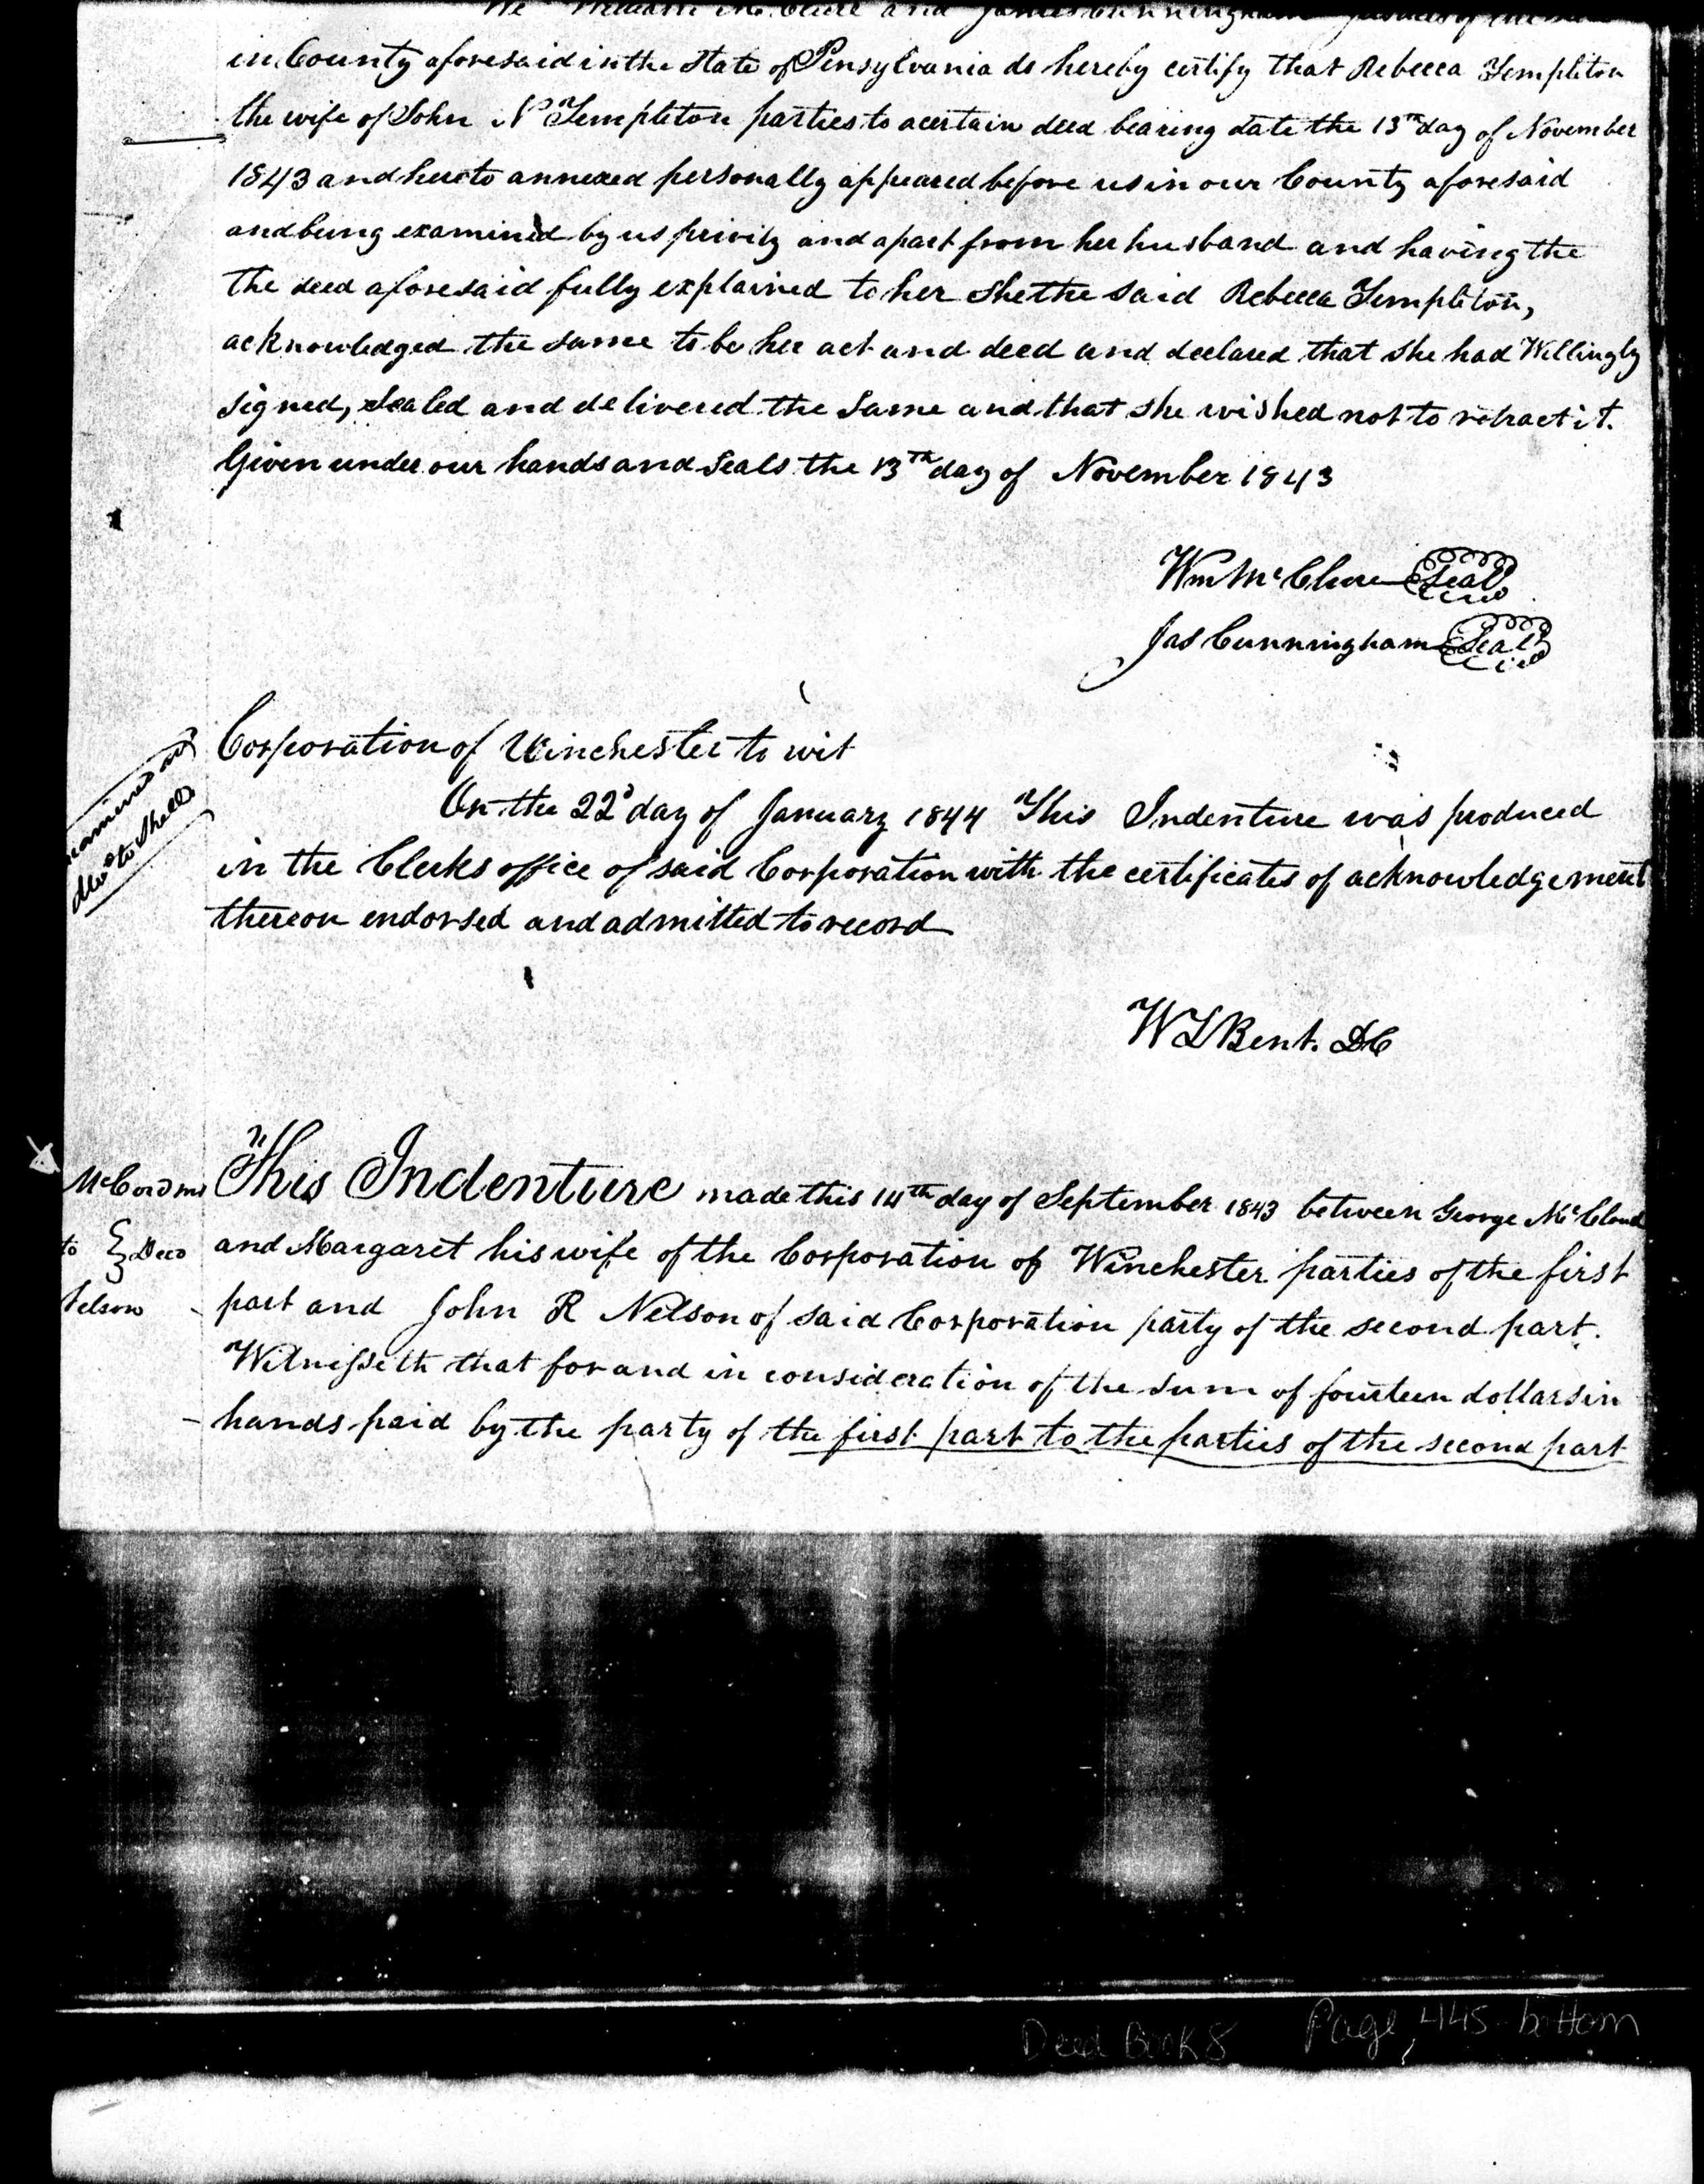 We William McClure and James Cunningham
in County aforesaid in the State of Pensylvania do hereby certify that Rebecca Templeton
the wife of John N Templeton parties to a certain deed bearing date the 13th day of November
1843 and hereto annexed personally appeared before us in our County aforesaid
and being examined by us privily and apart from her husband and having the
the deed aforesaid fully explained to her she the said Rebecca Templeton,
acknowledged the same to be her act and deed and declared that she had Willingly
signed, sealed and delivered the same and that she wished not to retract it.
Given under our hands and seals the 13th day of November 1843
Wm McClure Seal
Jas Cunningham Seal
Corporation of Winchester to wit
On the 22d day of January 1844 This Indenture was produced
in the Clerks office of said Corporation with the certificates of acknowledgement
thereon endorsed and admitted to record
to Shells
W L Bent. DC
This Indenture made this 14th day of September 1843 between George McCloud
and Margaret his wife of the Corporation of Winchester parties of the first
to
part and John R Nelson of said Corporation party of the second part.
elson
Witnesseth that for and in consideration of the sum of fourteen dollars in
hands paid by the party of the first part to the parties of the second part
Deed Book 8 Page 445 bottom